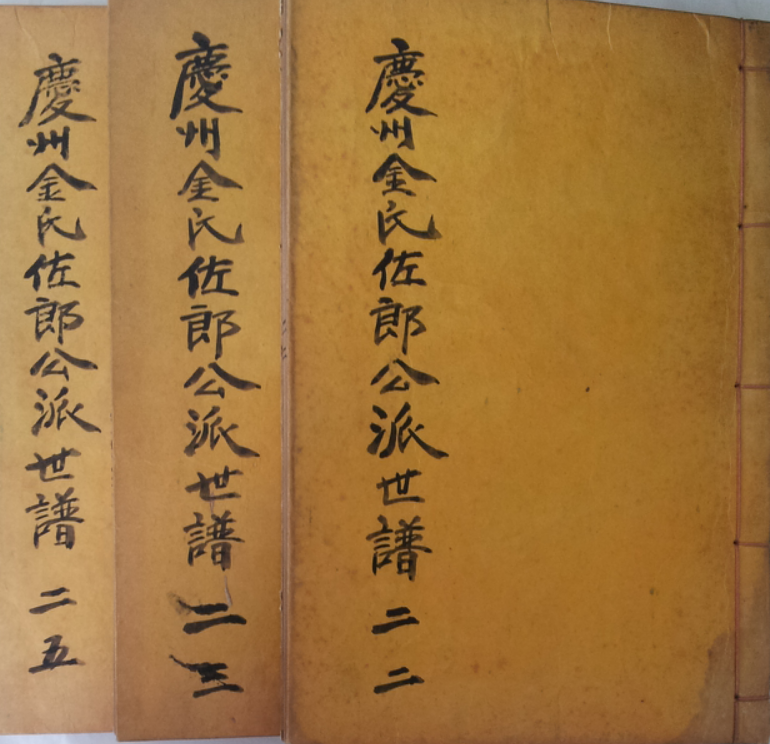 慶州金氏佐郎公派世譜 二二
慶州金氏佐郎公派世譜 二三
慶州金氏佐郎公派世譜 二五